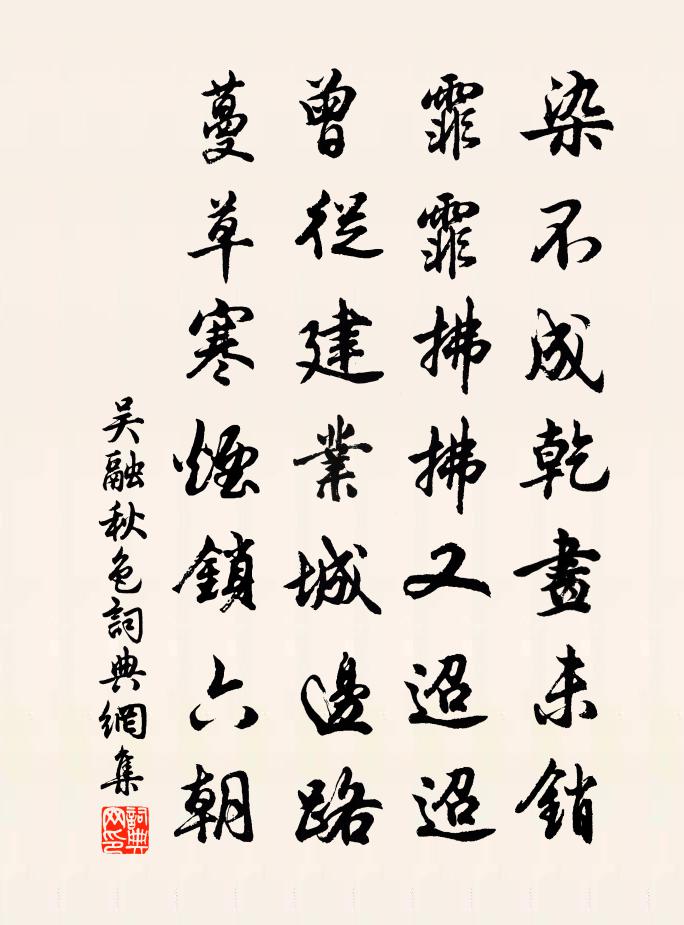 染不成乾畫未銷
霏霏拂拂又迢迢
曾從建業城邊路
蔓草寒煙鎖六朝
吳融秋色詞典網集
詞典網印